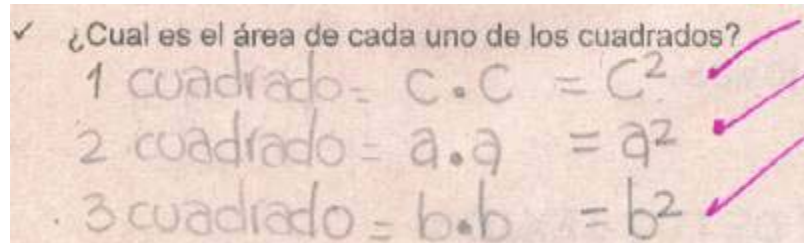 ✓ ¿Cual es el área de cada uno de los cuadrados?
1 cuadrado = c . c = c²
2 cuadrado = a . a = a²
. 3 cuadrado = b . b = b²